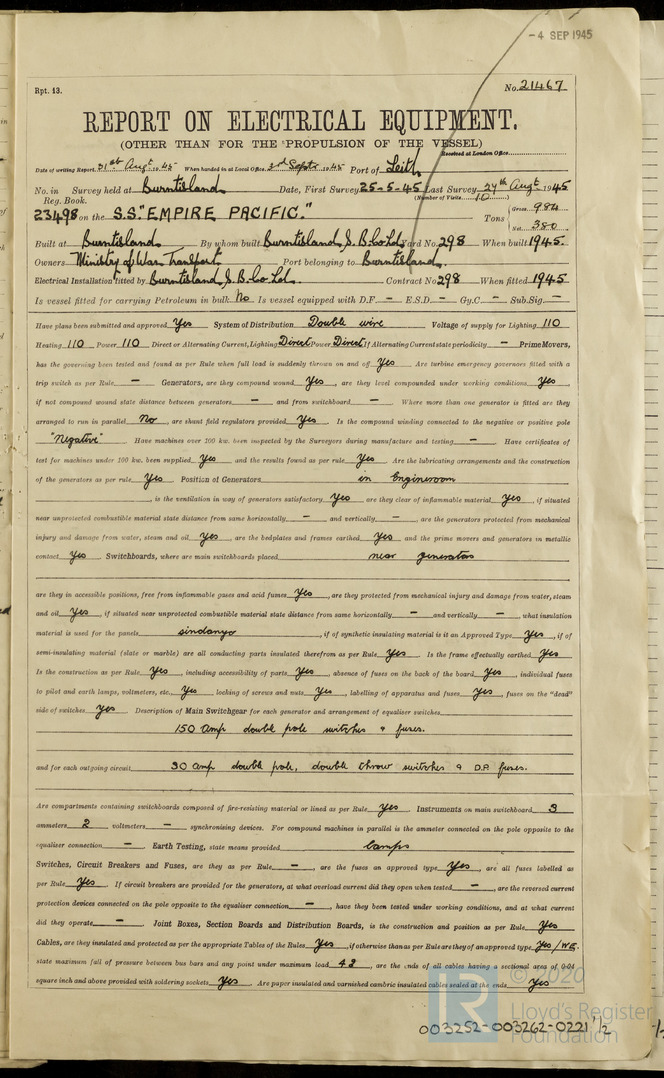 - 4 SEP 1945
Rpt. 13.
No. 21467
REPORT ON ELECTRICAL EQUIPMENT.
(OTHER THAN FOR THE PROPULSION OF THE VESSEL)
Received at London Office
Date of writing Report 31st Augt 1945 When handed in at Local Office 3rd Septr 1945 Port of Leith
No. in Survey held at Burntisland Date, First Survey 25-5-45 Last Survey 27th Augt 1945
Reg. Book. (Number of Visits 10)
23498 on the S.S. "EMPIRE PACIFIC." Tons Gross 984 Net 380
Built at Burntisland By whom built Burntisland S.B. Co Ld Yard No. 298 When built 1945.
Owners Ministry of War Transport Port belonging to Burntisland.
Electrical Installation fitted by Burntisland S.B. Co Ld. Contract No. 298 When fitted 1945
Is vessel fitted for carrying Petroleum in bulk No Is vessel equipped with D.F. — E.S.D. — Gy.C — Sub.Sig. —
Have plans been submitted and approved Yes System of Distribution Double wire Voltage of supply for Lighting 110
Heating 110 Power 110 Direct or Alternating Current, Lighting Direct Power Direct If Alternating Current state periodicity — Prime Movers,
has the governing been tested and found as per Rule when full load is suddenly thrown on and off Yes Are turbine emergency governors fitted with a
trip switch as per Rule — Generators, are they compound wound Yes, are they level compounded under working conditions Yes,
if not compound wound state distance between generators — and from switchboard — Where more than one generator is fitted are they
arranged to run in parallel No, are shunt field regulators provided Yes Is the compound winding connected to the negative or positive pole
"Negative" Have machines over 100 kw. been inspected by the Surveyors during manufacture and testing — Have certificates of
test for machines under 100 kw. been supplied Yes and the results found as per rule Yes Are the lubricating arrangements and the construction
of the generators as per rule Yes Position of Generators in Engineroom
, is the ventilation in way of generators satisfactory Yes are they clear of inflammable material Yes, if situated
near unprotected combustible material state distance from same horizontally — and vertically —, are the generators protected from mechanical
injury and damage from water, steam and oil Yes, are the bedplates and frames earthed Yes and the prime movers and generators in metallic
contact Yes Switchboards, where are main switchboards placed near generators
are they in accessible positions, free from inflammable gases and acid fumes Yes, are they protected from mechanical injury and damage from water, steam
and oil Yes, if situated near unprotected combustible material state distance from same horizontally — and vertically —, what insulation
material is used for the panels sindanyo, if of synthetic insulating material is it an Approved Type Yes, if of
semi-insulating material (slate or marble) are all conducting parts insulated therefrom as per Rule Yes Is the frame effectually earthed Yes
Is the construction as per Rule Yes, including accessibility of parts Yes, absence of fuses on the back of the board Yes, individual fuses
to pilot and earth lamps, voltmeters, etc. Yes locking of screws and nuts Yes, labelling of apparatus and fuses Yes, fuses on the "dead"
side of switches Yes Description of Main Switchgear for each generator and arrangement of equaliser switches
150 Amp double pole switches & fuses.
and for each outgoing circuit 30 Amp double pole, double throw switches & D.P. fuses.
Are compartments containing switchboards composed of fire-resisting material or lined as per Rule Yes Instruments on main switchboard 3
ammeters 2 voltmeters — synchronising devices. For compound machines in parallel is the ammeter connected on the pole opposite to the
equaliser connection — Earth Testing, state means provided lamps
Switches, Circuit Breakers and Fuses, are they as per Rule —, are the fuses an approved type Yes, are all fuses labelled as
per Rule Yes If circuit breakers are provided for the generators, at what overload current did they open when tested —, are the reversed current
protection devices connected on the pole opposite to the equaliser connection —, have they been tested under working conditions, and at what current
did they operate — Joint Boxes, Section Boards and Distribution Boards, is the construction and position as per Rule Yes
Cables, are they insulated and protected as per the appropriate Tables of the Rules Yes, if otherwise than as per Rule are they of an approved type Yes/W.E.
state maximum fall of pressure between bus bars and any point under maximum load, are the ends of all cables having a sectional area of 0·04
square inch and above provided with soldering sockets Yes Are paper insulated and varnished cambric insulated cables sealed at the ends Yes
© 2020
LR
Lloyd's Register
Foundation
003252-003262-0221 1/2